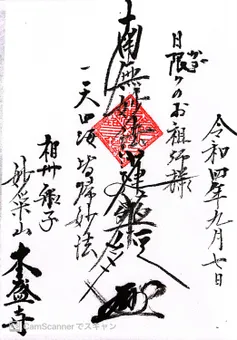 令和四年九月七日
日限りのお祖師様
南無妙法蓮華経
一天四海皆帰妙法
相州
本盛寺
CamScannerでスキャン